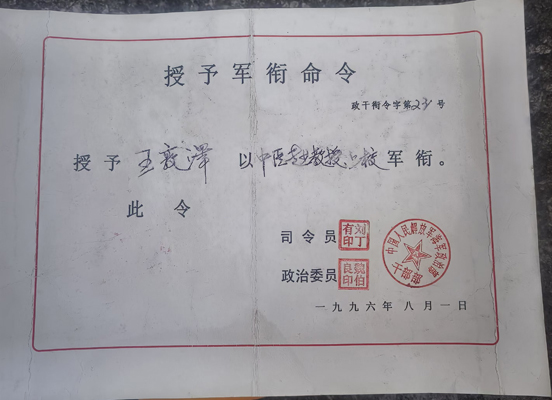 授予军衔命令
政干衔令字第 号
授予 王 泽 以中医 教授 校军衔。
此令
司令员 刘丁有印
政治委员 魏伯良印
中国人民解放军海军政治部 干部部
一九九六年八月一日